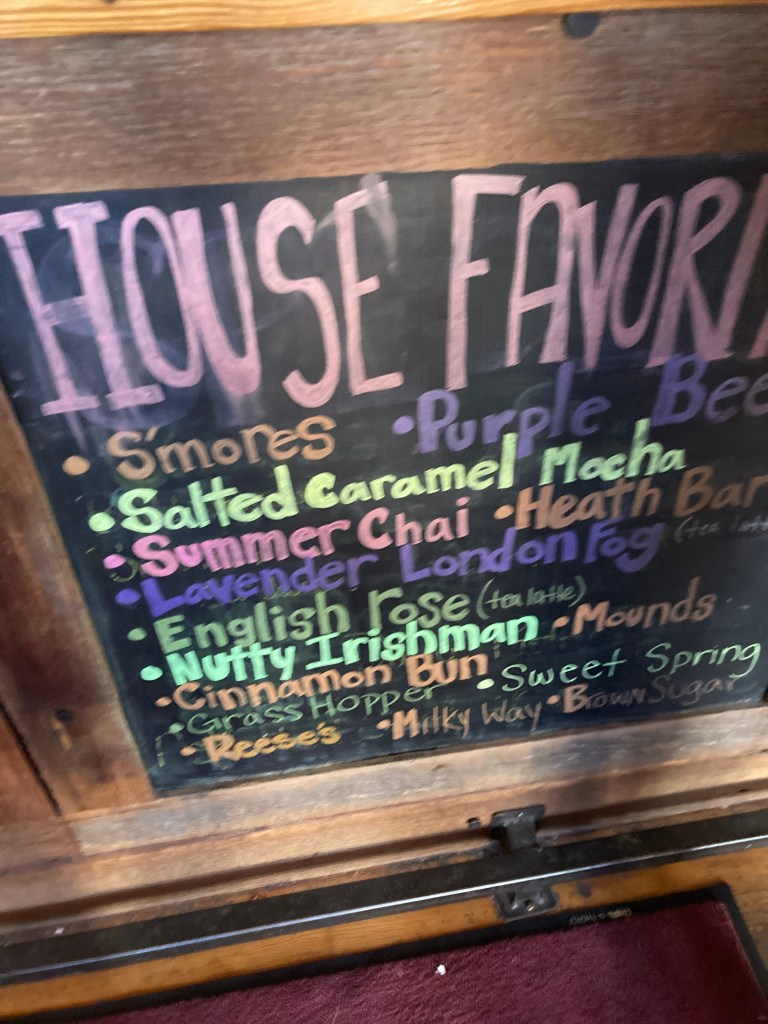 HOUSE FAVORI
• S'mores • Purple Bee
• Salted Caramel Mocha
• Summer Chai • Heath Bar
• Lavender London Fog (tea latt
• English rose (tea latte)
• Nutty Irishman • Mounds
• Cinnamon Bun
• Sweet Spring
• Grass Hopper
• Reese's • Milky Way • Brown Sugar